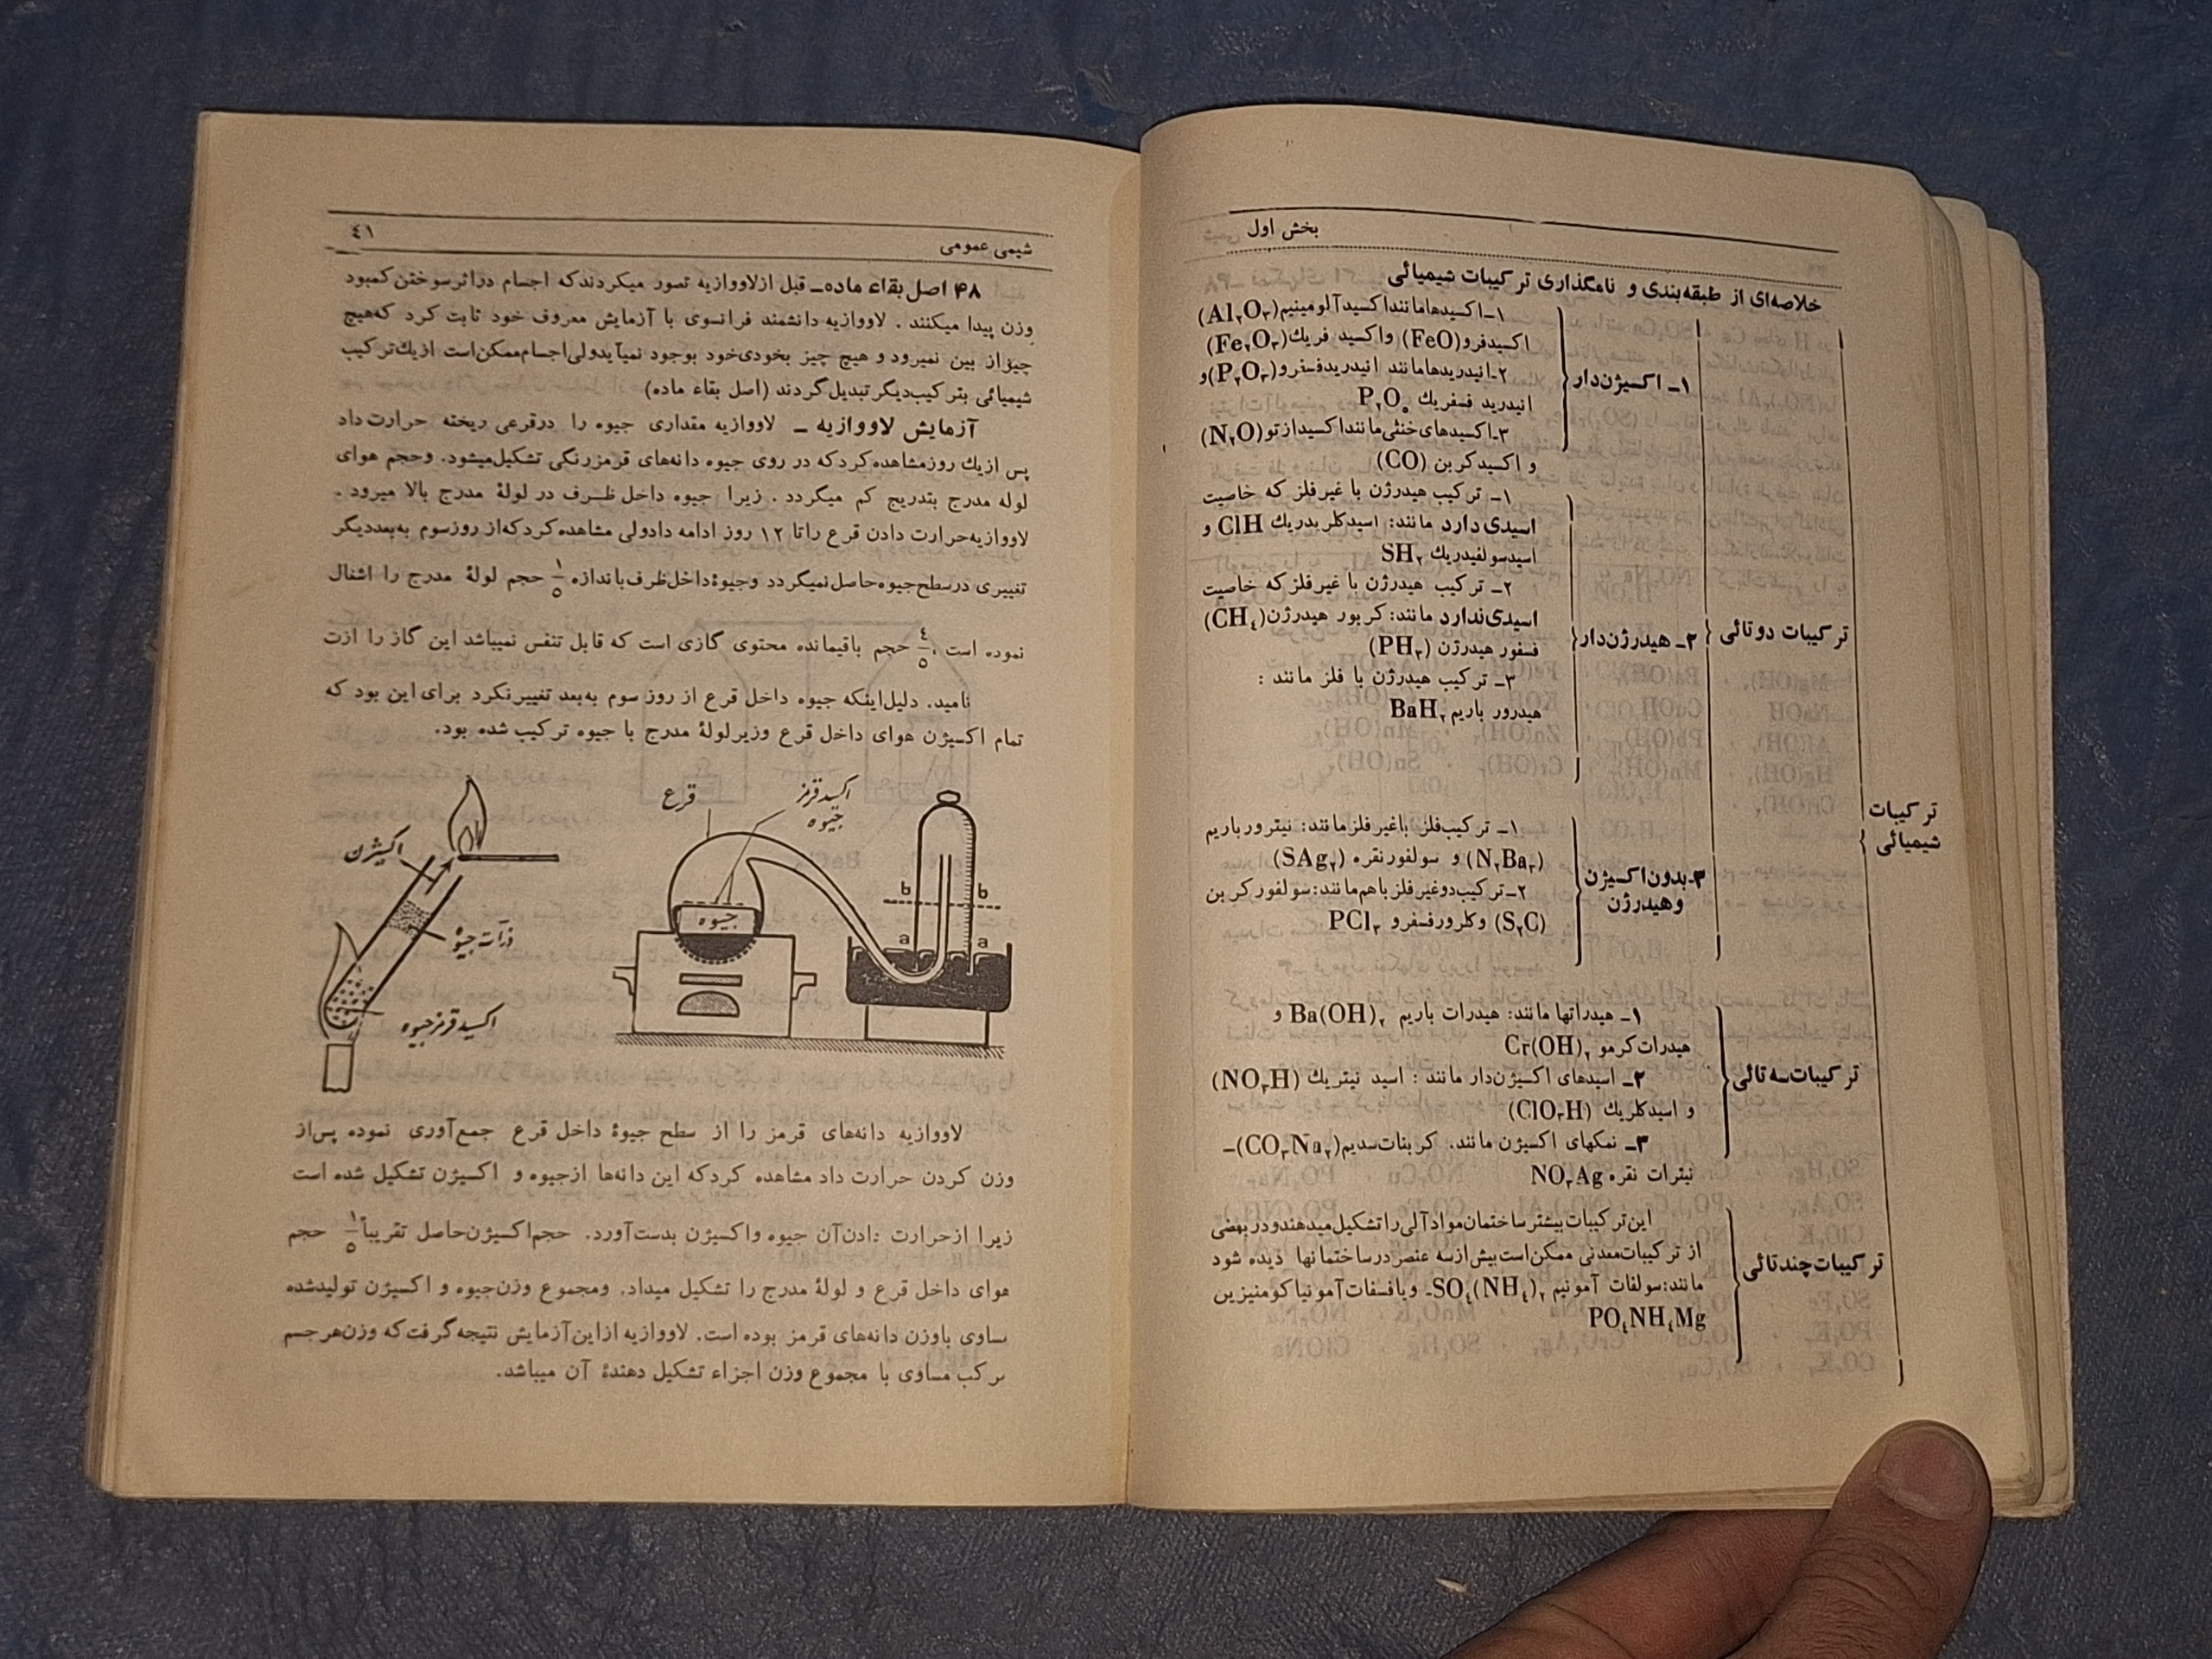 بخش اول
خلاصه‌ای از طبقه‌بندی و نامگذاری ترکیبات شیمیائی
ترکیبات
شیمیائی
ترکیبات دوتائی
۱ـ اکسیژن‌دار
۱ـ اکسیدها مانند اکسید آلومینیم (Al۲O۳)
اکسید فرو (FeO) و اکسید فریك (Fe۲O۳)
۲ـ انیدریدها مانند انیدرید فسفرو (P۲O۳) و
انیدرید فسفریك P۲O۵
۳ـ اکسیدهای خنثی مانند اکسید ازتو (N۲O)
و اکسید کربن (CO)
۲ـ هیدرژن‌دار
۱ـ ترکیب هیدرژن با غیرفلز که خاصیت
اسیدی دارد مانند: اسید کلریدریك ClH و
اسید سولفیدریك SH۲
۲ـ ترکیب هیدرژن با غیرفلز که خاصیت
اسیدی ندارد مانند: کربور هیدرژن (CH٤)
فسفور هیدرژن (PH۳)
۳ـ ترکیب هیدرژن با فلز مانند :
هیدرور باریم BaH۲
۳ـ بدون اکسیژن
و هیدرژن
۱ـ ترکیب فلز باغیرفلز مانند: نیترور باریم
(N۲Ba۳) و سولفور نقره (SAg۲)
۲ـ ترکیب دو غیرفلز باهم مانند: سولفور کربن
(S۲C) و کلرور فسفرو PCl۳
ترکیبات سه تائی
۱ـ هیدراتها مانند: هیدرات باریم Ba(OH)۲ و
هیدرات کرمو Cr(OH)۲
۲ـ اسیدهای اکسیژن‌دار مانند : اسید نیتریك (NO۳H)
و اسید کلریك (ClO۳H)
۳ـ نمکهای اکسیژن مانند. کربنات سدیم (CO۳Na۲)ـ
نیترات نقره NO۳Ag
ترکیبات چندتائی
این ترکیبات بیشتر ساختمان مواد آلی را تشکیل میدهند و در بعضی
از ترکیبات معدنی ممکن است بیش از سه عنصر در ساختمانها دیده شود
مانند: سولفات آمونیم SO٤(NH٤)۲ـ و یا فسفات آمونیاکو منیزین
PO٤NH٤Mg
شیمی عمومی
٤۱
۴۸ اصل بقاء ماده ـ قبل از لاووازیه تصور میکردند که اجسام در اثر سوختن کمبود
وزن پیدا میکنند . لاووازیه دانشمند فرانسوی با آزمایش معروف خود ثابت کرد که هیچ
چیز از بین نمیرود و هیچ چیز بخودی خود بوجود نمیآید ولی اجسام ممکن است از یك ترکیب
شیمیائی بترکیب دیگر تبدیل گردند (اصل بقاء ماده)
آزمایش لاووازیه ـ لاووازیه مقداری جیوه را در قرعی ریخته حرارت داد
پس از یك روز مشاهده کرد که در روی جیوه دانه‌های قرمز رنگی تشکیل میشود. و حجم هوای
لوله مدرج بتدریج کم میگردد . زیرا جیوه داخل ظرف در لولهٔ مدرج بالا میرود .
لاووازیه حرارت دادن قرع را تا ۱۲ روز ادامه داد ولی مشاهده کرد که از روز سوم به بعد دیگر
تغییری در سطح جیوه حاصل نمیگردد و جیوهٔ داخل ظرف باندازه ۱/۵ حجم لولهٔ مدرج را اشغال
نموده است ، ٤/۵ حجم باقیمانده محتوی گازی است که قابل تنفس نمیباشد این گاز را ازت
نامید. دلیل اینکه جیوه داخل قرع از روز سوم به بعد تغییر نکرد برای این بود که
تمام اکسیژن هوای داخل قرع و زیر لولهٔ مدرج با جیوه ترکیب شده بود.
قرع
اکسید قرمز
جیوه
جیوه
b
b
a
a
اکسیژن
ذرات جیوه
اکسید قرمز جیوه
لاووازیه دانه‌های قرمز را از سطح جیوهٔ داخل قرع جمع‌آوری نموده پس از
وزن کردن حرارت داد مشاهده کرد که این دانه‌ها از جیوه و اکسیژن تشکیل شده است
زیرا از حرارت دادن آن جیوه و اکسیژن بدست آورد. حجم اکسیژن حاصل تقریباً ۱/۵ حجم
هوای داخل قرع و لولهٔ مدرج را تشکیل میداد. و مجموع وزن جیوه و اکسیژن تولید شده
مساوی با وزن دانه‌های قرمز بوده است. لاووازیه از این آزمایش نتیجه گرفت که وزن هر جسم
مرکب مساوی با مجموع وزن اجزاء تشکیل دهندهٔ آن میباشد.